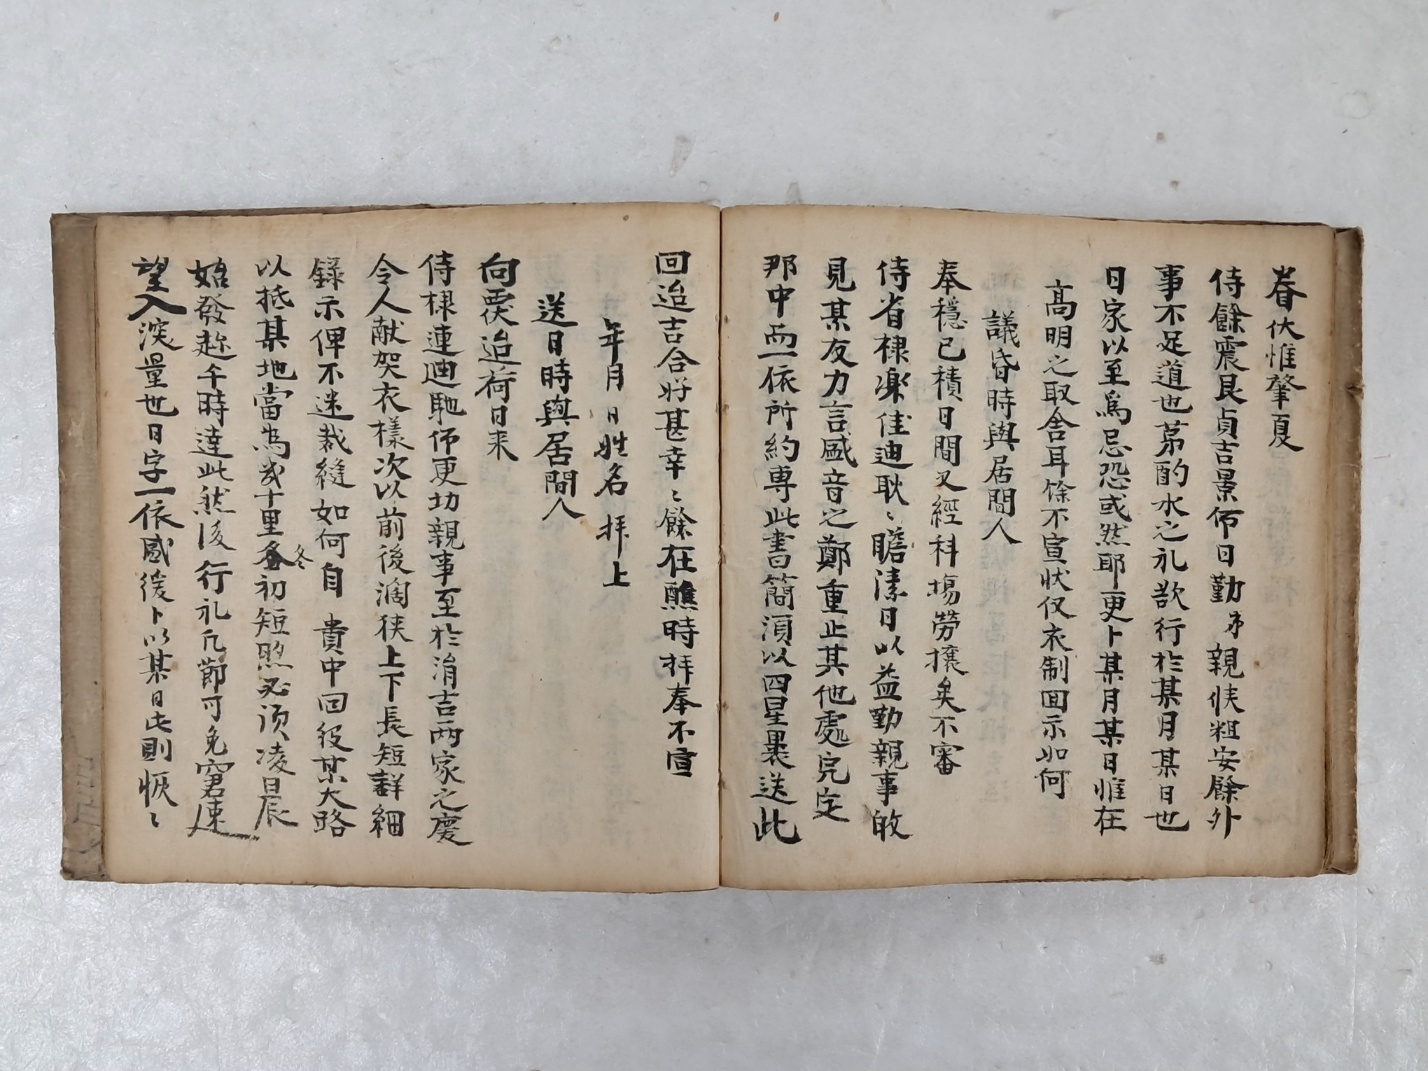 眷伏惟肇夏
侍餘震艮貞吉景仰日勤弟親候粗安餘外
事不足道也苐酌水之礼欲行於某月某日也
日家以至為忌恐或然耶更卜某月某日惟在
高明之取舍耳餘不宣狀仅衣制回示如何
議昏時與居間人
奉穩已積日間又經科場勞攘矣不審
侍省棣凞佳迪耿〻瞻溸日以益勤親事敀
見某友力言感音之鄭重止其他處完定
那中而一依所約専此書簡湏以四星裹送此
回迨吉合好甚幸〻餘在醮時拜奉不宣
年月日姓名拜上
送日時與居間人
向覄迨荷日来
侍棣連迪馳仰更切親事至於涓吉兩家之慶
令人献架衣樣次以前後濶狹上下長短詳細
錄示俾不迷裁縫如何自貴中回役某大路
以抵某地當為或十里冬初短煕必须凌晨
始發趂午時達此然後行礼凡節可免窘速
望入深量也日字一依感後卜以某日生則恢〻